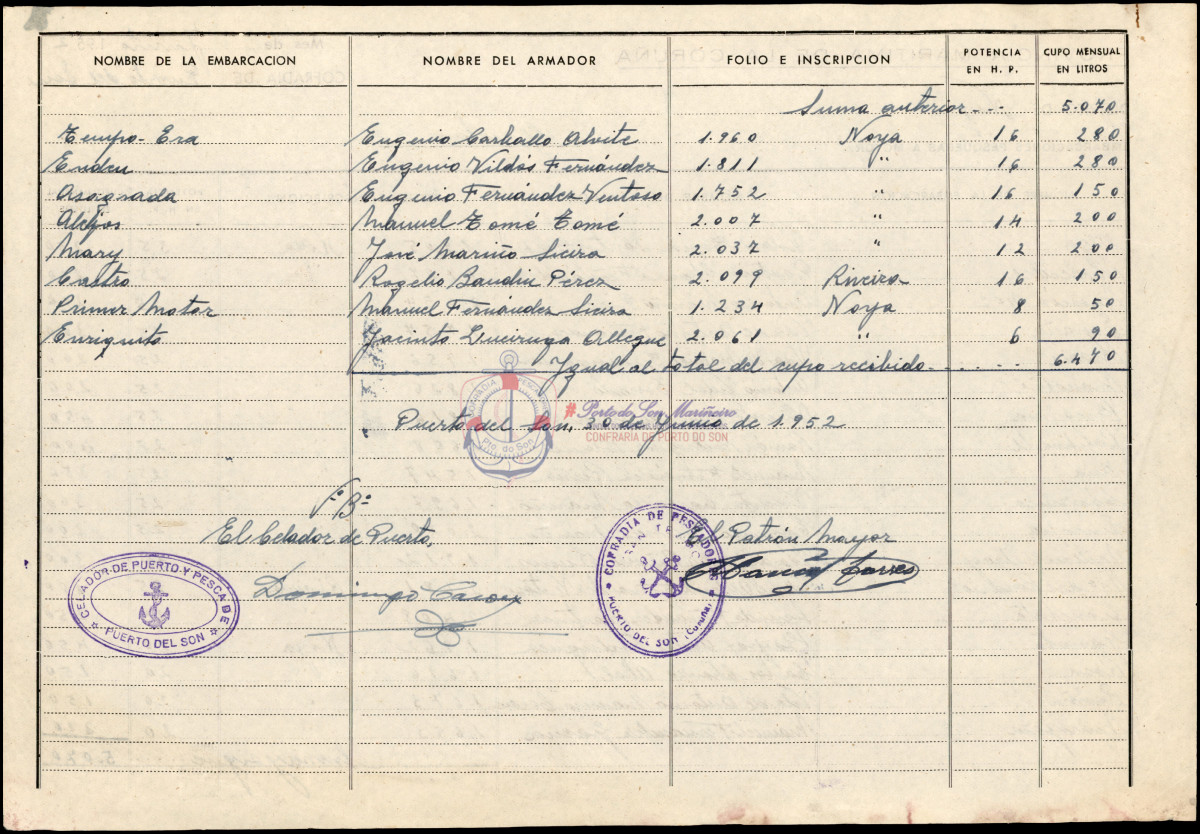 NOMBRE DE LA EMBARCACION NOMBRE DEL ARMADOR FOLIO E INSCRIPCION POTENCIA EN H. P. CUPO MENSUAL EN LITROS
Suma anterior--- 5.070
Tempo-Era Eugenio Carballo Alvite 1.960 Noya 16 280
Eugenio Vildós Fernández 1.811 " 16 280
Asognada Eugenio Fernández Ventoso 1.752 " 16 150
Manuel Tomé Tomé 2.007 " 14 200
Mary José Mariño Sieira 2.037 " 12 200
Castro Rogelio Baudin Pérez 2.099 Riveira 16 150
Primer Motor Manuel Fernández Sieira 1.234 Noya 8 50
Enriquito Jacinto Queiruga 2.061 " 6 90
Igual al total del cupo recibido------ 6.470
COFRADIA PESCADORES
Pto. do Son
# Porto do Son Mariñeiro
CONFRARIA DE PORTO DO SON
Puerto del Son, 30 de Junio de 1.952
Vº Bº
El Celador de Puerto, El Patrón Mayor
CELADOR DE PUERTO Y PESCA DE
PUERTO DEL SON
Domingo
COFRADIA DE PESCADORES
PUERTO DEL SON (Coruña)
Torres